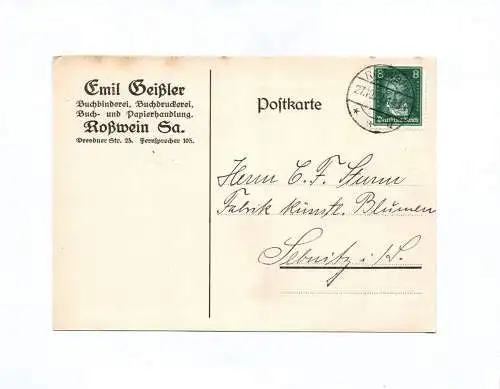 Emil Geißler
Buchbinderei, Buchdruckerei,
Buch- und Papierhandlung.
Roßwein Sa.
Dresdner Str. 25. Fernsprecher 105.
Postkarte
8 8
Deutsches Reich
Herrn C. F. Sturm
Fabrik künstl. Blumen
Sebnitz i/S.